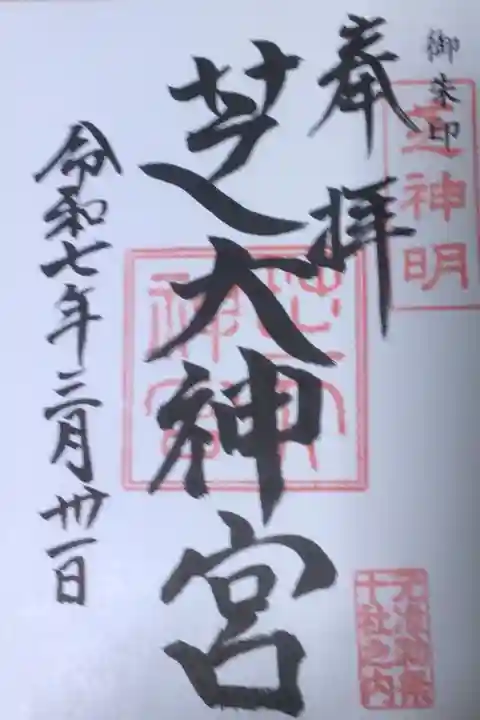 御朱印
奉拝
芝大神宮
令和七年三月卅一日
神明
芝大神宮
十社之内